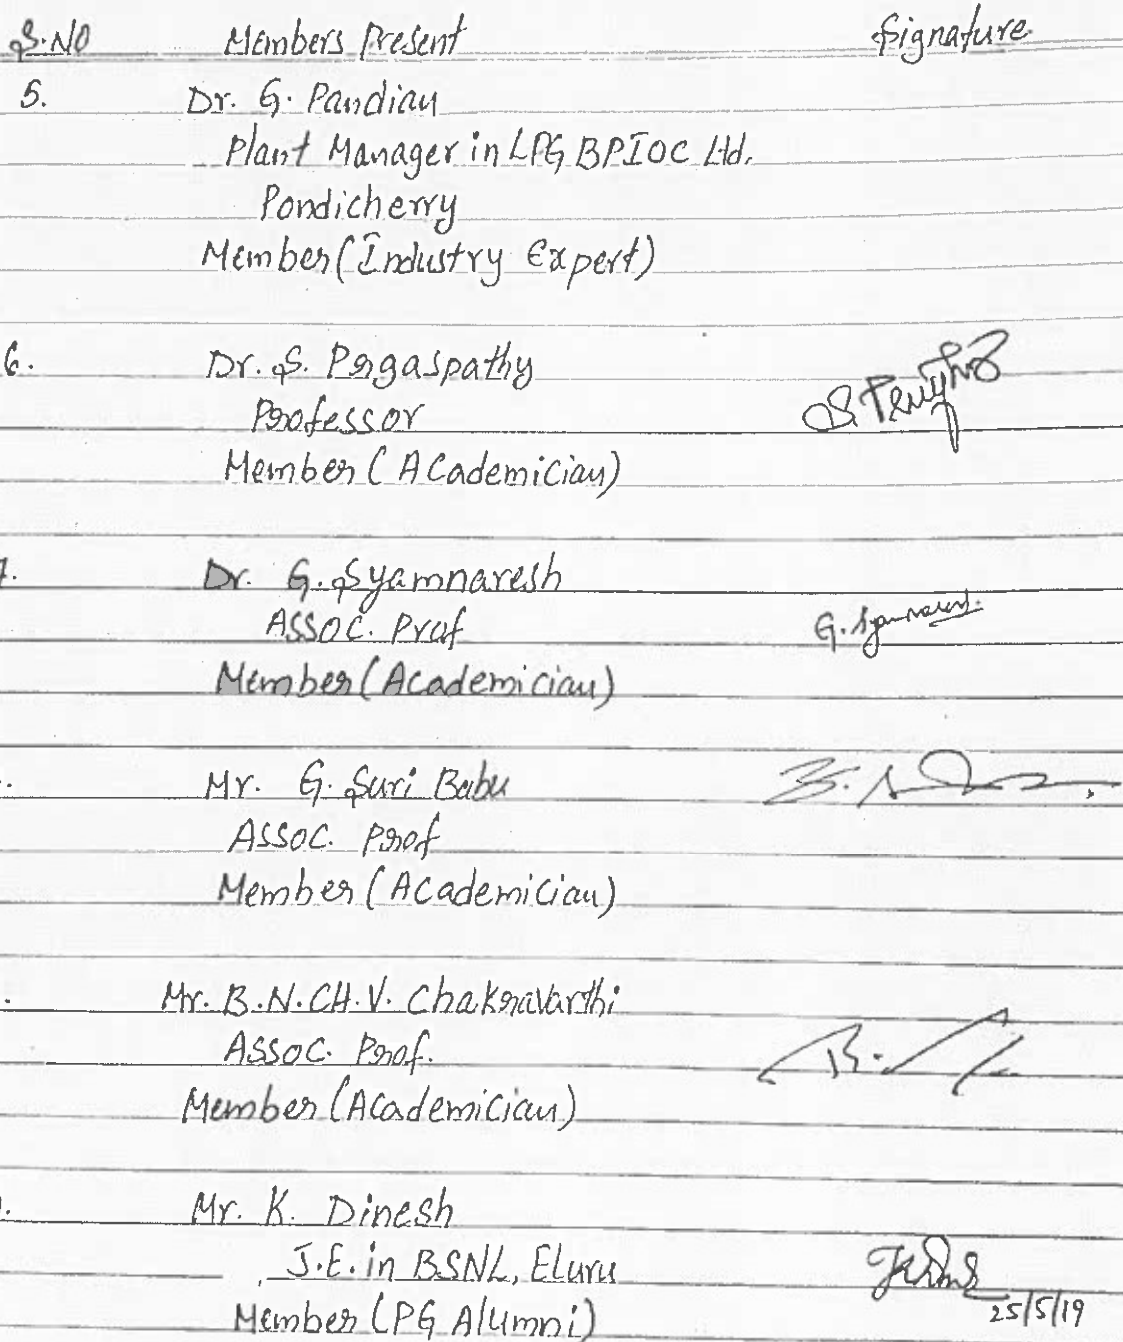 S.NO Members Present Signature
5. Dr. G. Pandian
Plant Manager in LPG BPIOC Ltd.
Pondicherry
Member (Industry Expert)
6. Dr. S. Pragaspathy
Professor
Member (Academician)
7. Dr. G. Syamnaresh
Assoc. Prof
G. Syamnaresh
Member (Academician)
Mr. G. Suri Babu
Assoc. Prof
Member (Academician)
Mr. B.N.CH.V. Chakravarthi
Assoc. Prof.
Member (Academician)
Mr. K. Dinesh
J.E. in BSNL, Eluru
Member (PG Alumni) 25/5/19